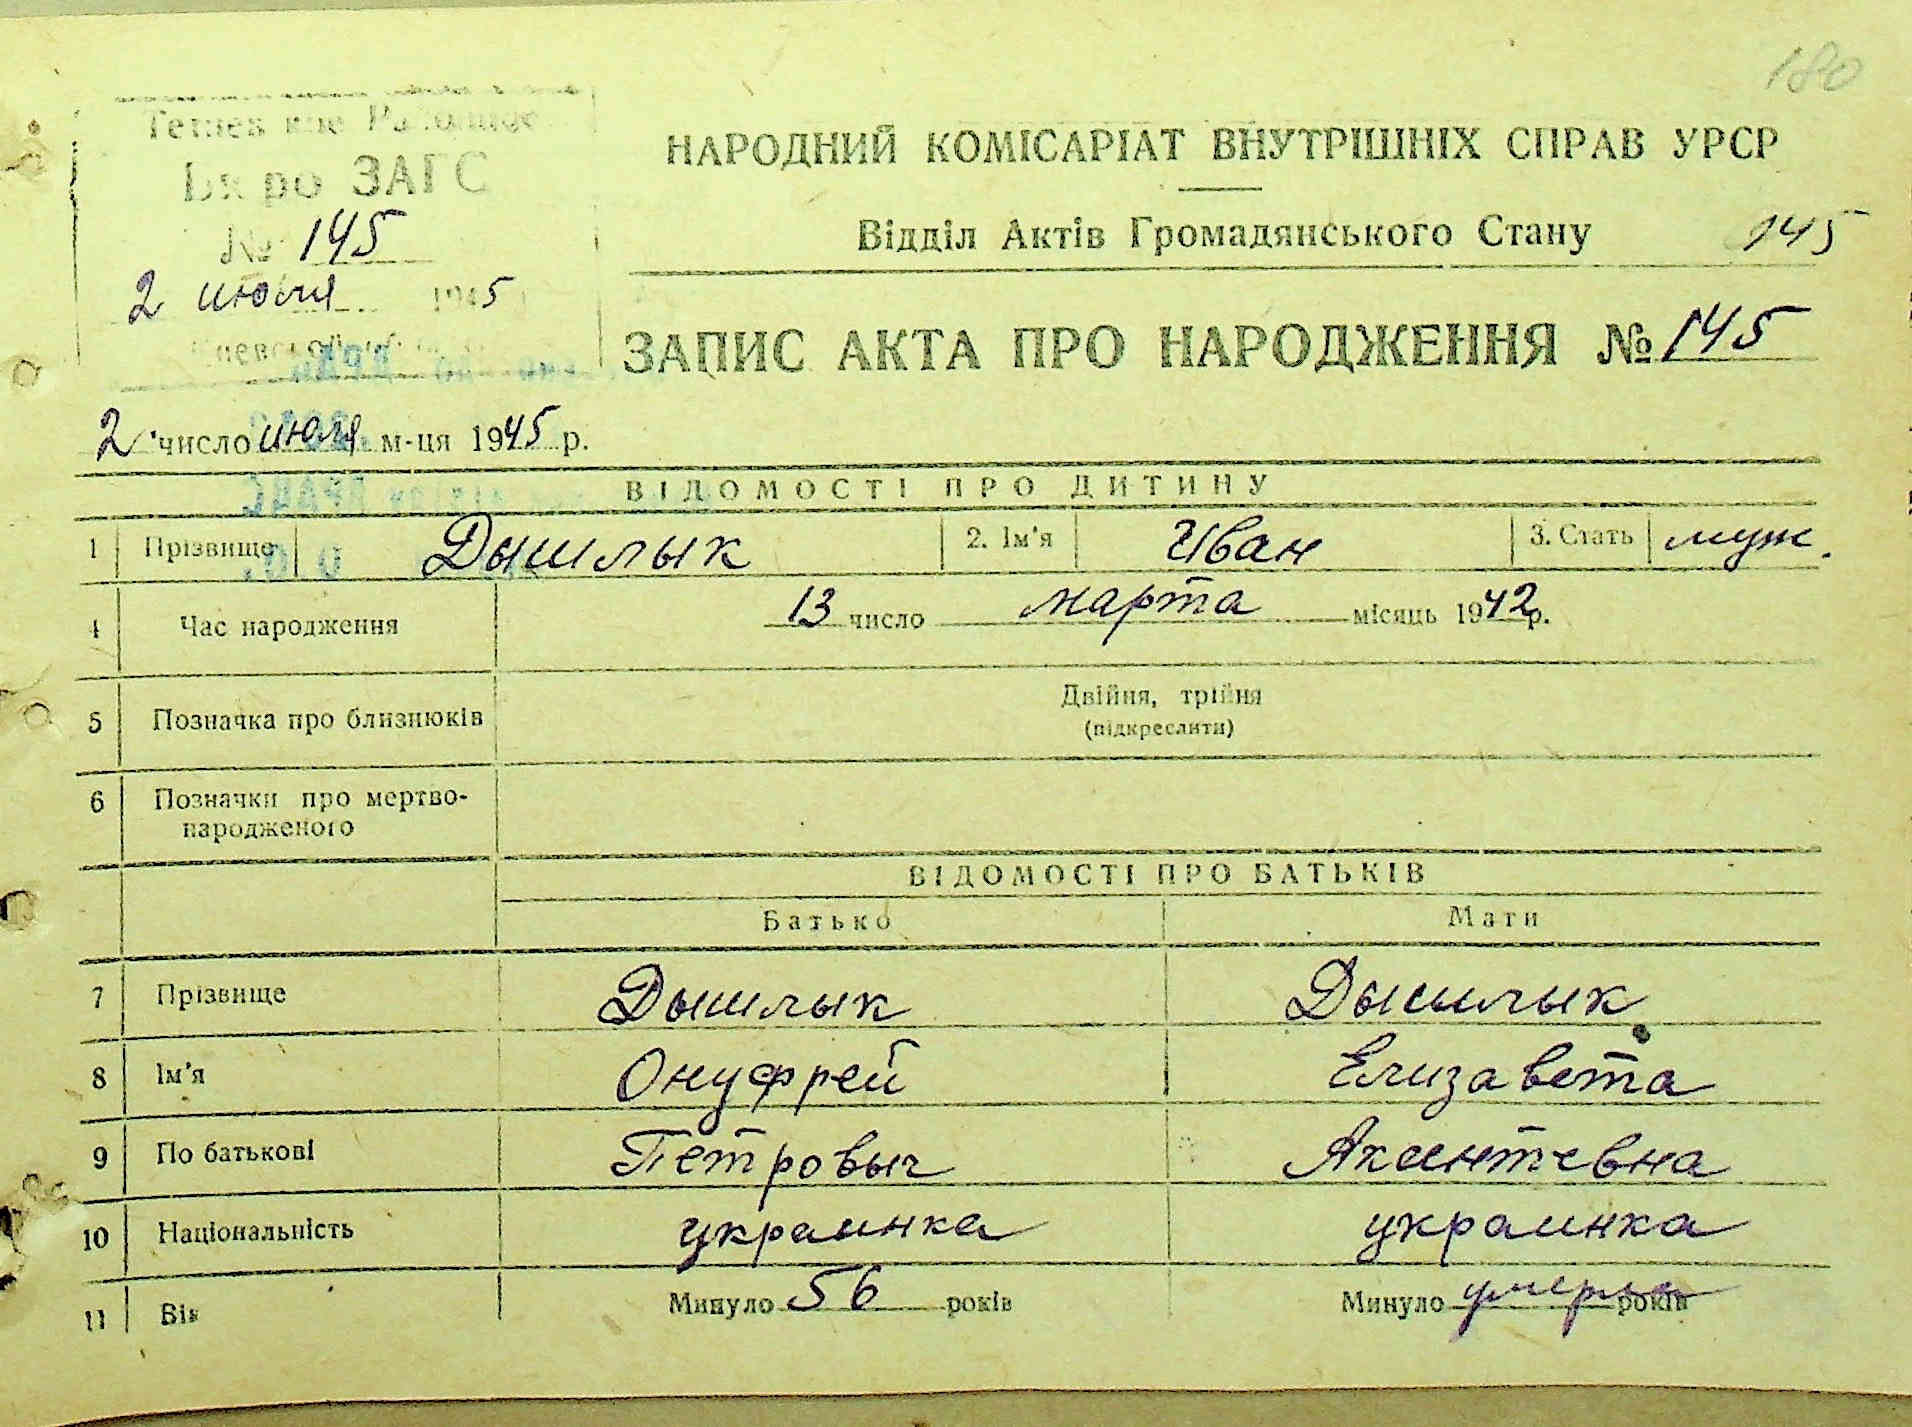 180
Бюро ЗАГС
№ 145
2 июля 1945
НАРОДНИЙ КОМІСАРІАТ ВНУТРІШНІХ СПРАВ УРСР
Відділ Актів Громадянського Стану 145
ЗАПИС АКТА ПРО НАРОДЖЕННЯ № 145
2 число июля м-ця 1945 р.
ВІДОМОСТІ ПРО ДИТИНУ
1 Прізвище Дышлык 2. Ім'я Иван 3. Стать муж.
4 Час народження 13 число марта місяць 1942 р.
5 Позначка про близнюків Двійня, трійня
(підкреслити)
6 Позначки про мертво-
народженого
ВІДОМОСТІ ПРО БАТЬКІВ
Батько Мати
7 Прізвище Дышлык Дышлык
8 Ім'я Онуфрей Елизавета
9 По батькові Петровыч Акентевна
10 Національність украинка украинка
11 Вік Минуло 56 років Минуло умерла років